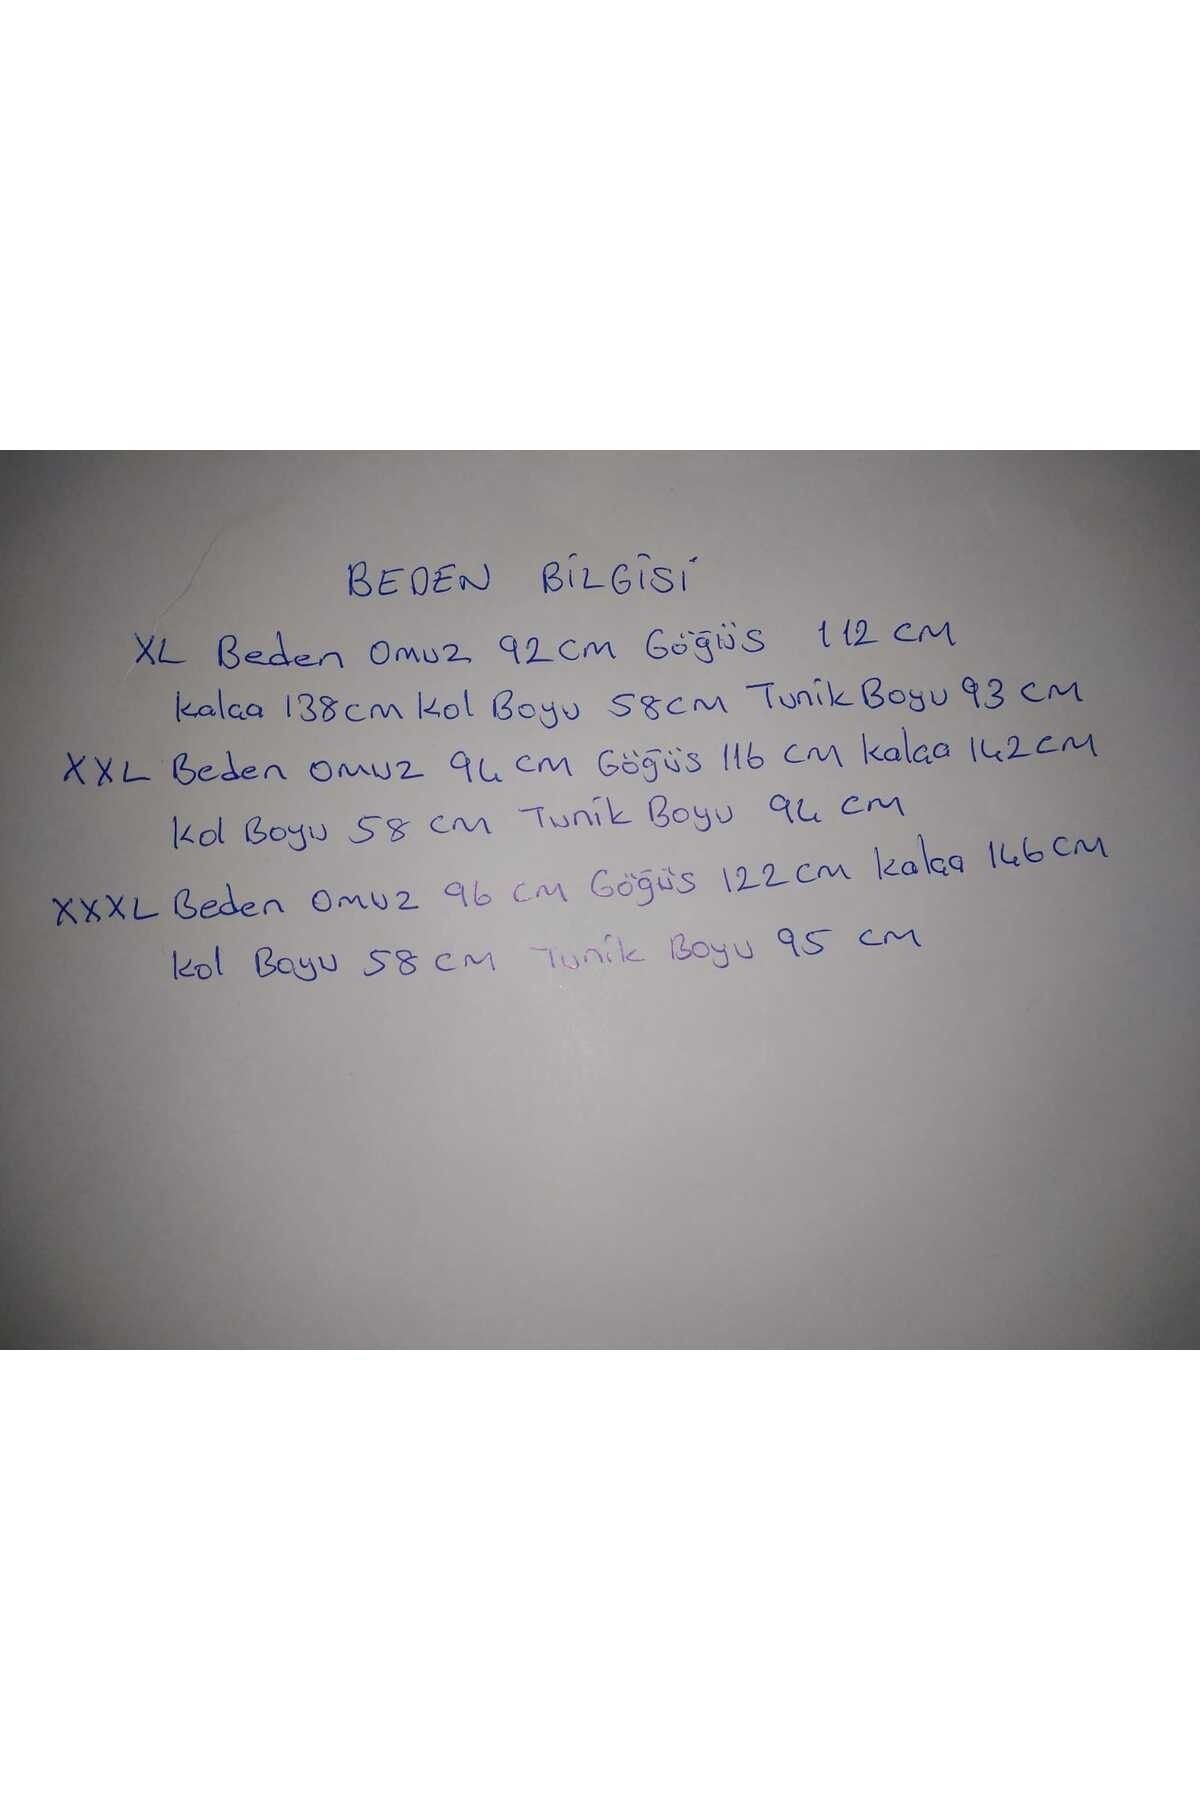 BEDEN BİLGİSİ
XL Beden Omuz 92 cm Göğüs 112 cm
kalça 138 cm Kol Boyu 58 cm Tunik Boyu 93 cm
XXL Beden Omuz 94 cm Göğüs 116 cm kalça 142 cm
Kol Boyu 58 cm Tunik Boyu 94 cm
XXXL Beden Omuz 96 cm Göğüs 122 cm kalça 146 cm
Kol Boyu 58 cm Tunik Boyu 95 cm